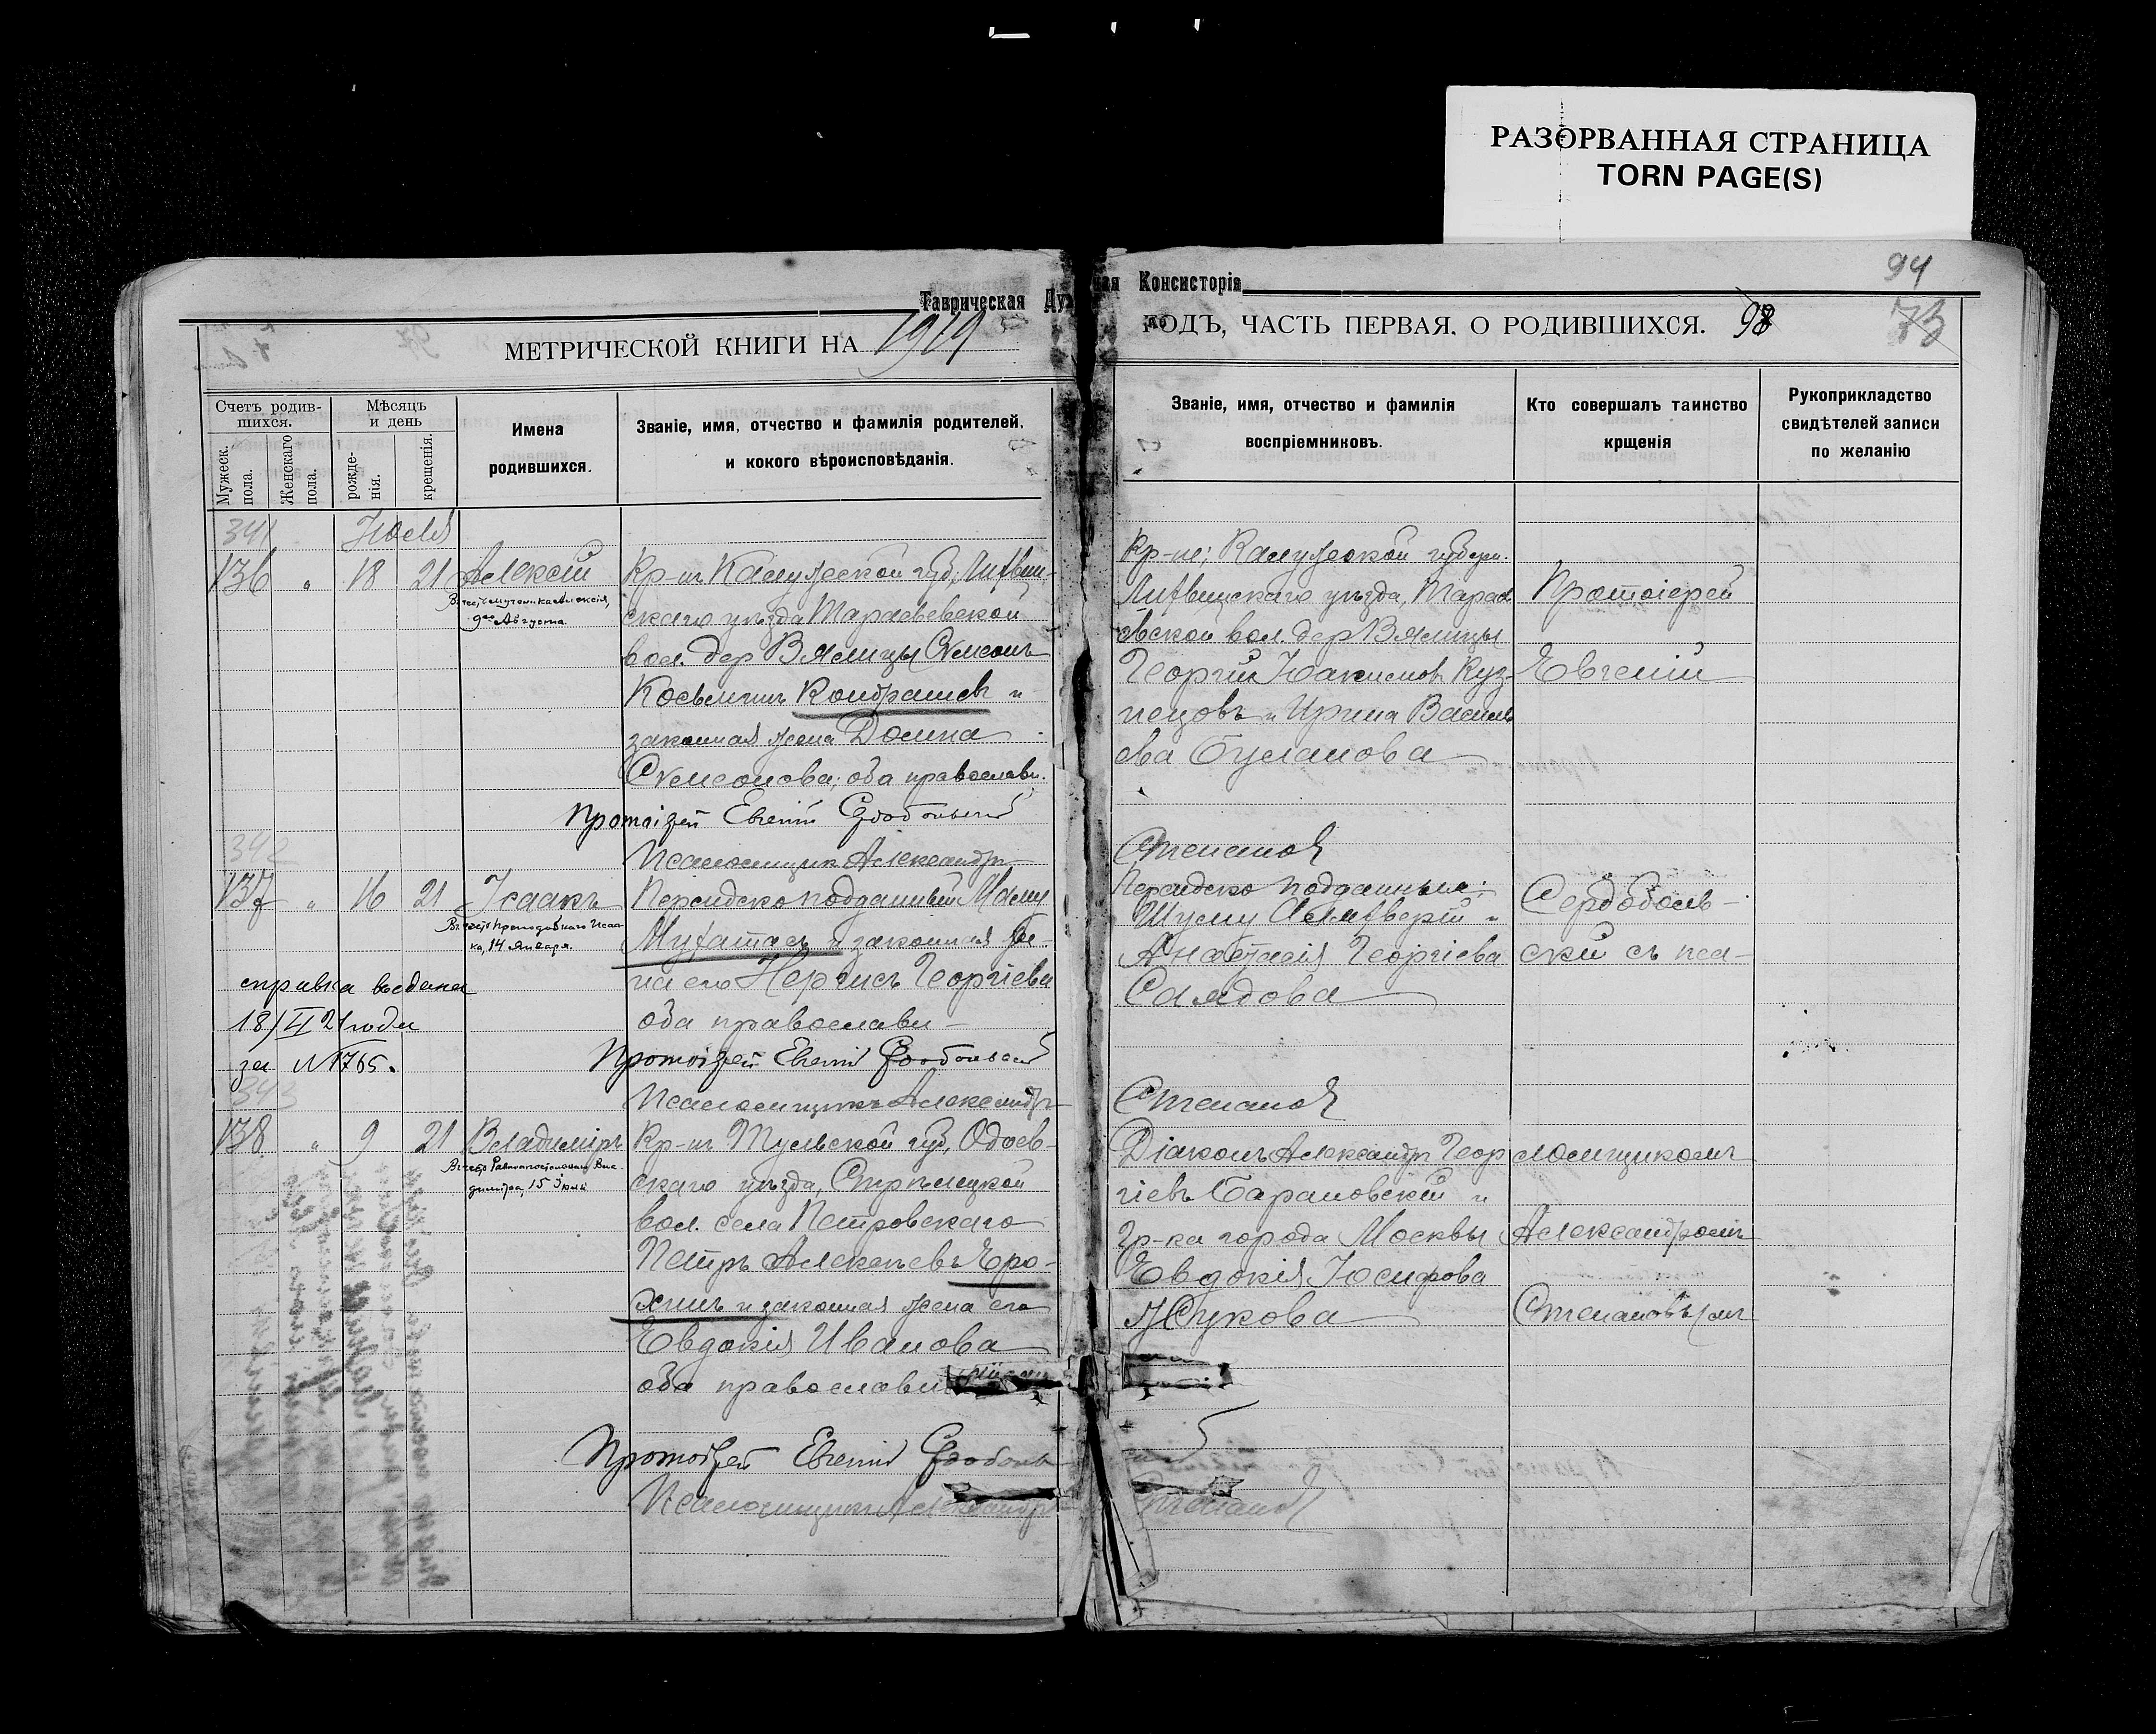 РАЗОРВАННАЯ СТРАНИЦА
TORN PAGE(S)
94
Таврическая Ду
ная Консисторія
МЕТРИЧЕСКОЙ КНИГИ НА 1919
ГОДЪ, ЧАСТЬ ПЕРВАЯ. О РОДИВШИХСЯ. 98
73
Счетъ родив-
шихся.
Мужеск.
пола.
Женскаго
пола.
Мѣсяцъ
и день
рожде-
нія.
крещенія.
Имена
родившихся.
Званіе, имя, отчество и фамилія родителей,
и кокого вѣроисповѣданія.
Званіе, имя, отчество и фамилія
воспріемниковъ.
Кто совершалъ таинство
крщенія
Рукоприкладство
свидѣтелей записи
по желанію
341 Іюля
136 " 18 21 Алексій
Въ честь мученика Алексія,
9го Августа
Кр-нъ Калужской губ., Лихвин-
скаго уѣзда Тарасьевской
вол. дер Вялицы Симеонъ
Косьминъ Кондрашевъ и
законная жена Домна
Симеонова; оба православн.
Протоіерей Евгеній Сердобольскій
Псаломщикъ Александръ
Кр-не; Калужской губерн.
Лихвинскаго уѣзда, Тарас
евской вол. дер Вялицы
Георгій Іоакимовъ Куз-
нецовъ и Ирина Василь
ева Буланова
Степановъ
Протоіерей
Евгеній
342
137 " 16 21 Исаакъ
Въ честь Преподобнаго Исаа-
ка, 14 Января.
Персидско подданный
и законная же-
на его Нергисъ Георгіева
оба православн-
Протоіерей Евгеній Сердобольскій
Псаломщикъ Александръ
справка выдана
18/II 21 года
за N 1765.
Персидско подданные:
и
Анастасія Георгіева
Саядова
Степановъ
Сердоболь-
скій съ пса-
343
138 " 9 21 Владиміръ
Въ честь Равноапостольнаго Вла-
диміра, 15 Іюля
Кр-нъ Тульской губ., Одоев-
скаго уѣзда, Стрѣлецкой
вол. села Петровскаго
Петръ Алексѣевъ Еро-
хинъ и законная жена его
Евдокія Иванова
оба православн
Протоіерей Евгеній Сердоболь
скій
Псаломщикъ Александръ
Степановъ
Діаконъ Александръ Геор
гіевъ Барановскій и
Гр-ка города Москвы
Евдокія Іосифова
Жукова
ломщикомъ
Александромъ
Степановымъ